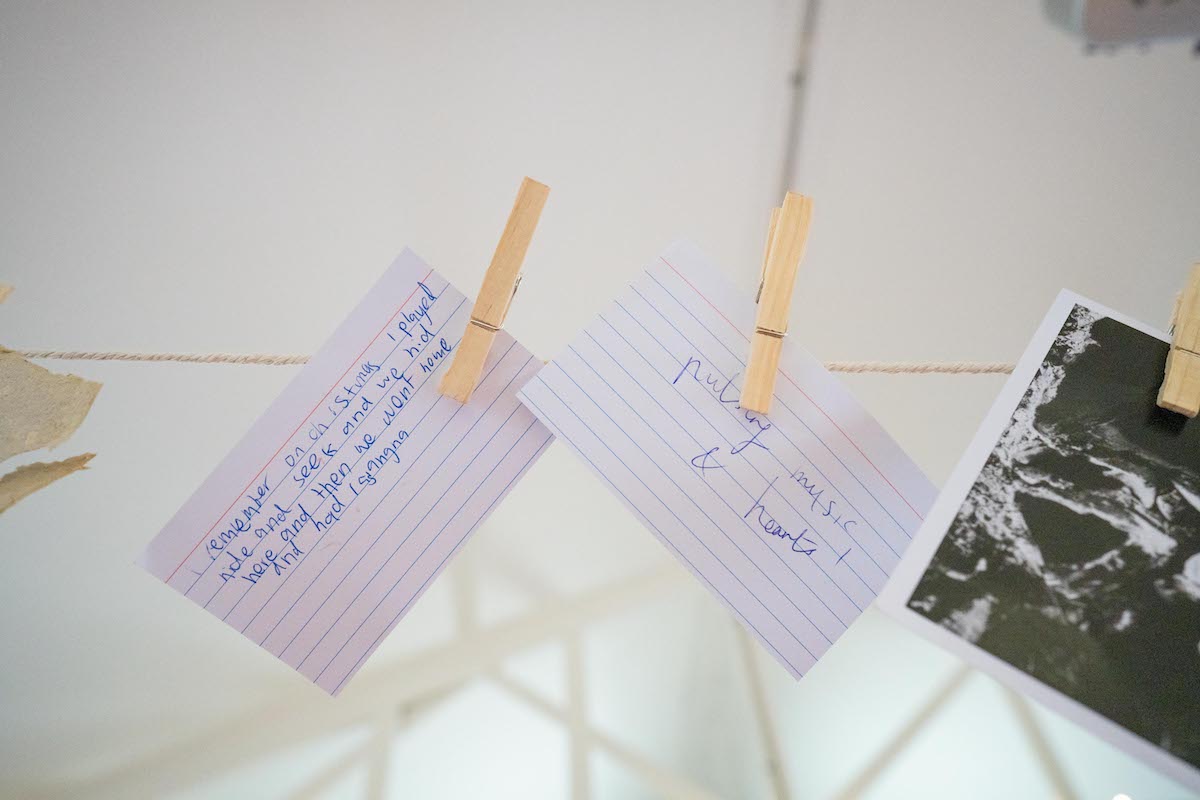 I remember on christmas i played
hide and seek and we hid
here and then we went home
and had lasangna
putting music
& hearts!